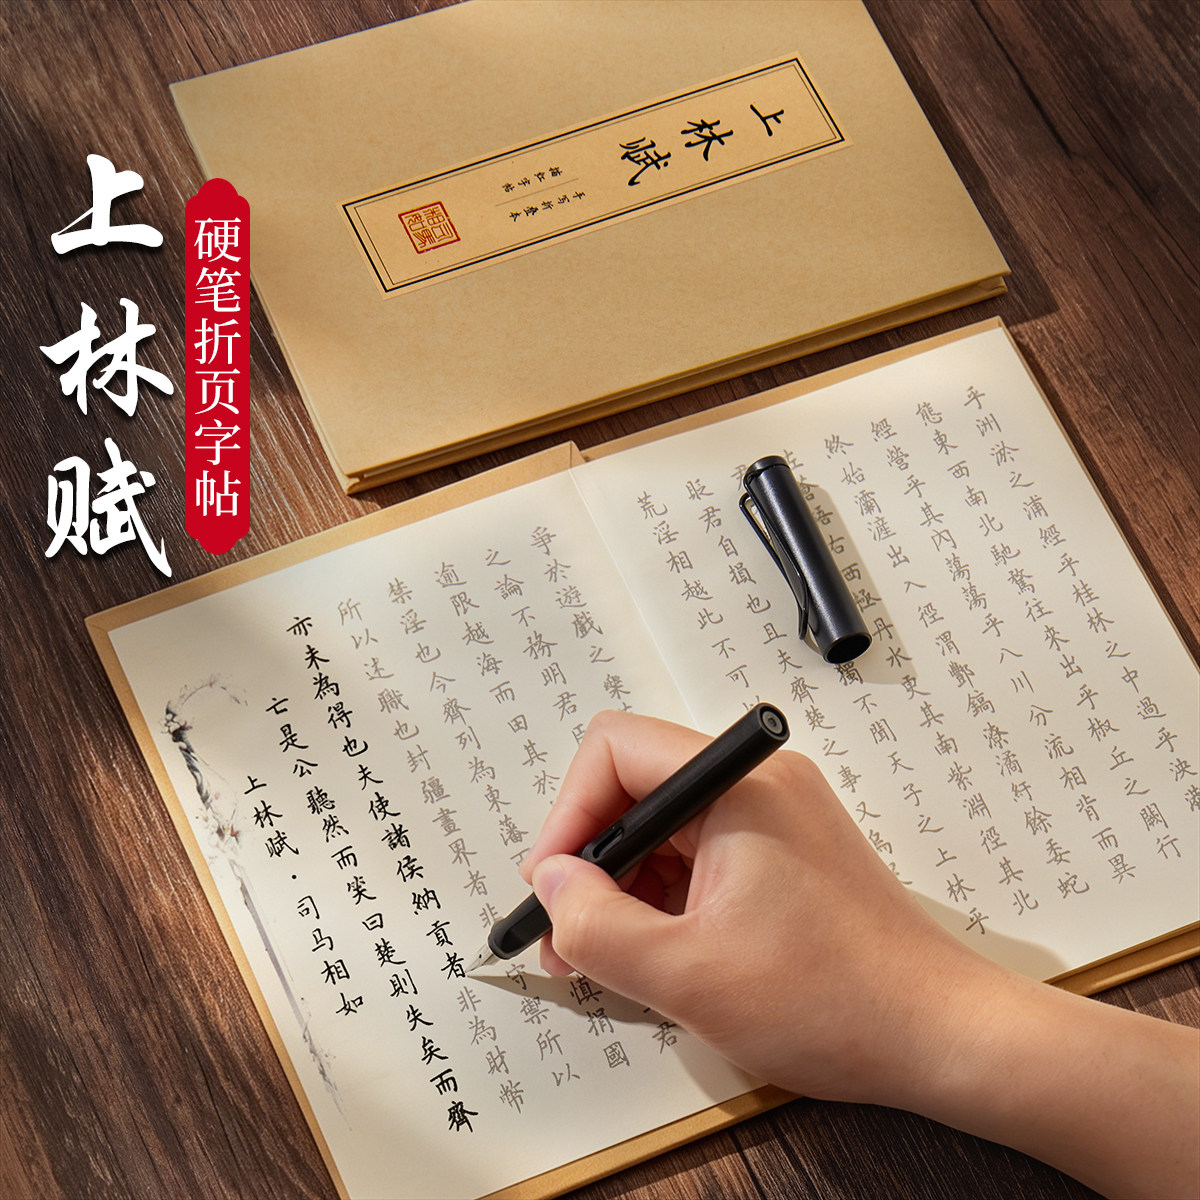 上林赋
硬笔折页字帖
上林赋
手写折叠本
描红字帖
上林賦·司马相如
亡是公聽然而笑曰楚則失矣而齊
亦未為得也夫使諸侯納貢者非為財幣
所以述職也封疆畫界者非 守禦所以
禁淫也今齊列為東藩 慎捐國
逾限越海而田其於 君
之論不務明君臣
爭於遊戲之樂
荒淫相越此不可以
貶君自損也且夫齊楚之事又烏
君 獨不聞天子之上林乎
蒼梧右西極丹水更其南紫淵徑其北
終始灞滻出入徑渭酆鎬潦潏紆餘委蛇
經營乎其內蕩蕩乎八川分流相背而異
態東西南北馳騖往來出乎椒丘之闕行
乎洲淤之浦經乎桂林之中過乎泱漭